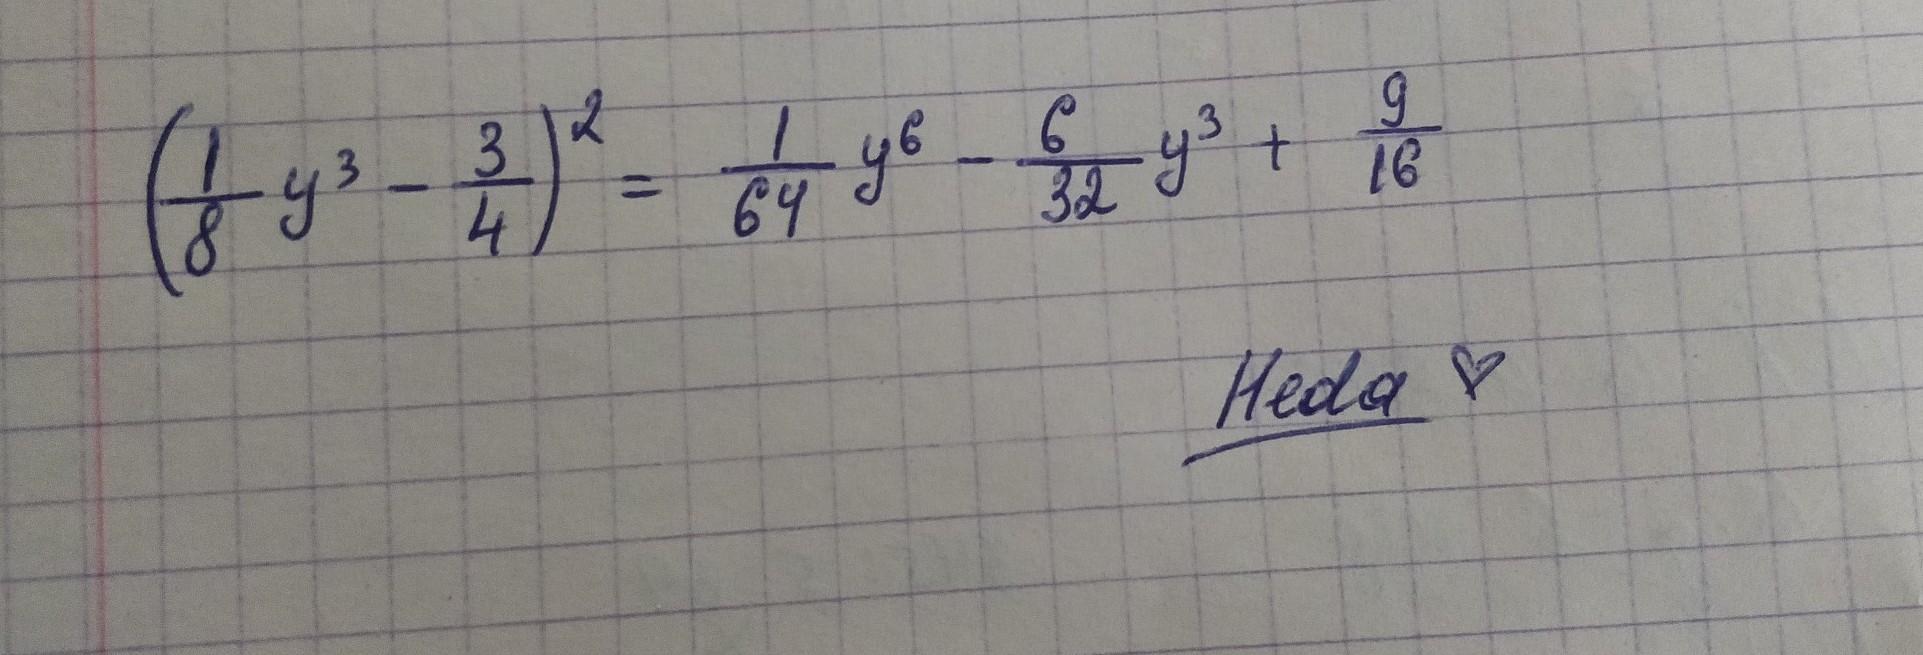 (1/8 y³ - 3/4)² = 1/64 y⁶ - 6/32 y³ + 9/16
Heda ♡